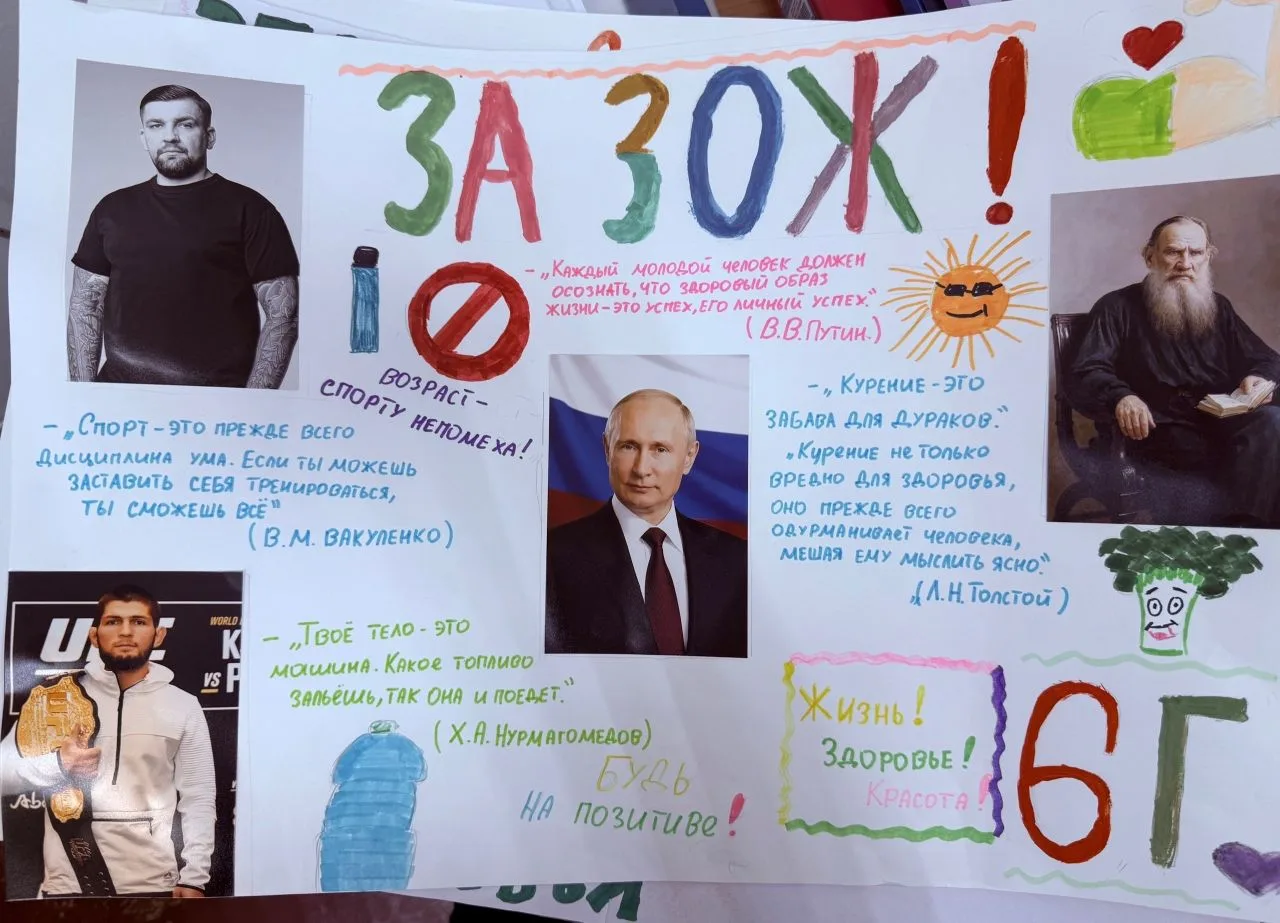 ЗА ЗОЖ!
– „Каждый молодой человек должен
осознать, что здоровый образ
жизни – это успех, его личный успех.“
(В.В.Путин.)
Возраст –
спорту непомеха!
– „Спорт – это прежде всего
дисциплина ума. Если ты можешь
заставить себя тренироваться,
ты сможешь всё“
(В.М. Вакуленко)
– „Курение – это
забава для дураков.“
„Курение не только
вредно для здоровья,
оно прежде всего
одурманивает человека,
мешая ему мыслить ясно.“
(Л.Н.Толстой)
UFC
WORLD
VS
– „Твоё тело – это
машина. Какое топливо
зальёшь, так она и поедет.“
(Х.А.Нурмагомедов)
Будь
на позитиве!
Жизнь!
Здоровье!
Красота!
6Г